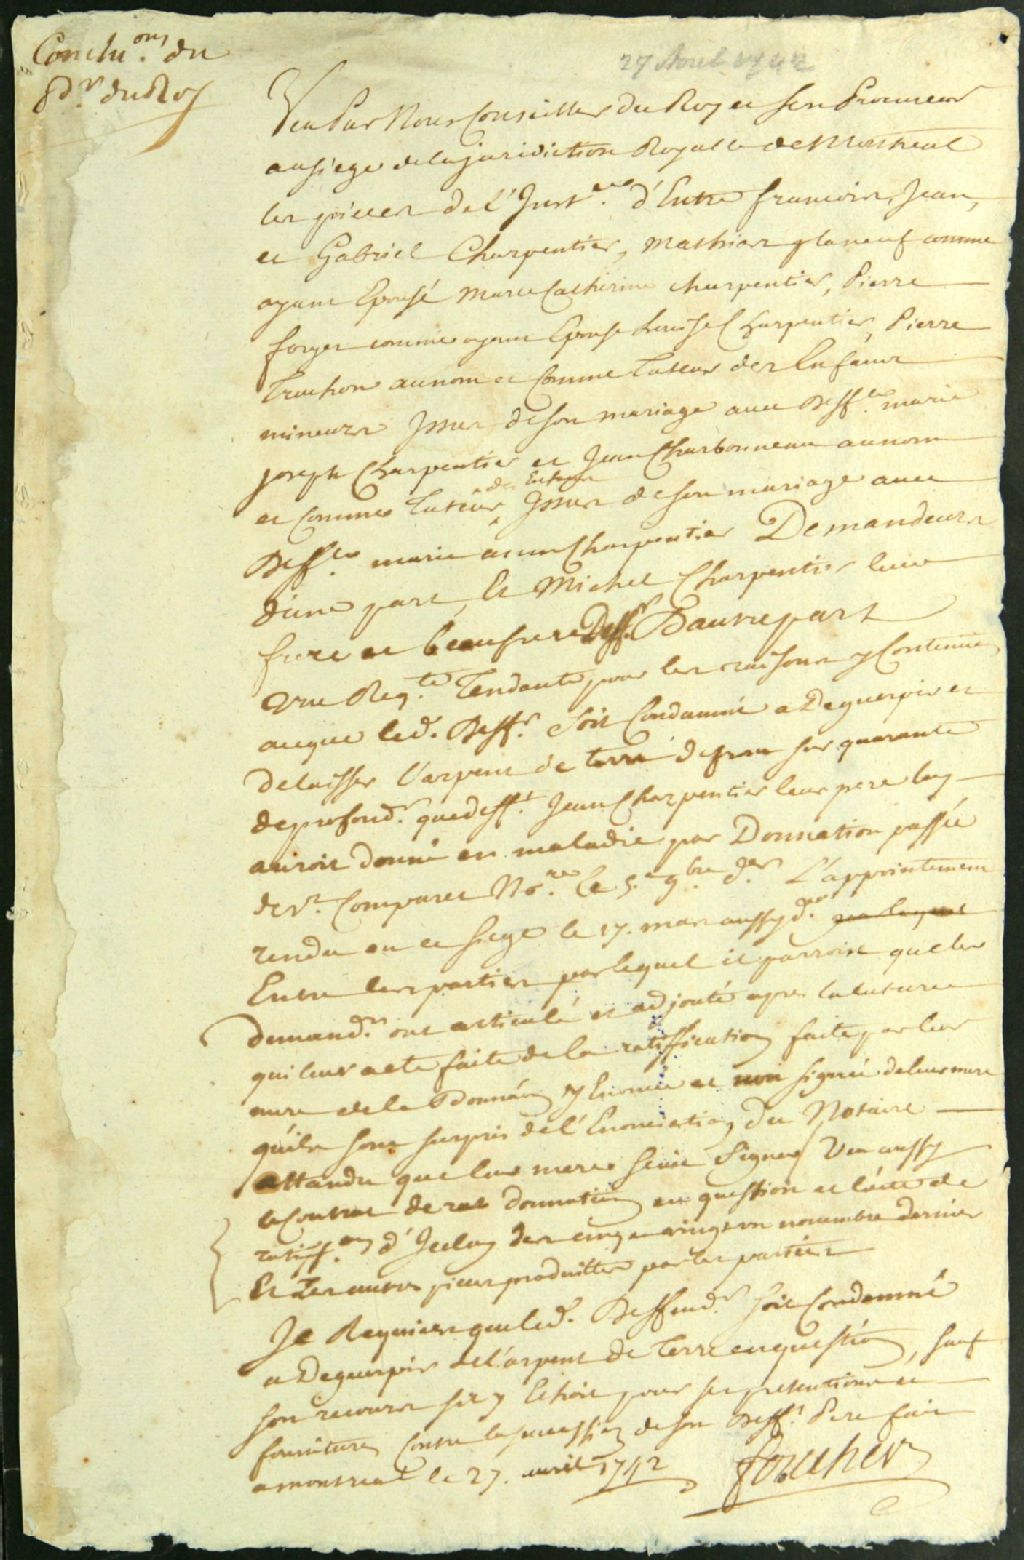 Conclu.ons du
Pr. du Roy
27 Avril 1742
Veu Par Nous Conseiller Du Roy et son Procureur
au siege de la jurisdiction Royalle de Montreal
les pieces de l'Inst.ce d'Entre francois, Jean,
et Gabriel Charpentier, Mathieu glaneuf comme
ayant Epousé Marie Catherine charpentier, Pierre
forget comme ayant Epousé Louise Charpentier, Pierre
Truchon au nom et Comme Tuteur des Enfans
mineurs Issus de son mariage avec Deff.te marie
joseph Charpentier et Jean Charbonneau au nom
et Comme Tuteur des Enfans Issus de son mariage avec
Deff.te marie Charpentier Demandeurs
d'une part, Et Michel Charpentier leur
frere et beaufrere Deff.r D'autre part
vne Req.te Tendante pour les raisons y Contenues
aceque led. Deff.r soit Condamné a Deguerpir et
delaisser l'arpent de terre de fron sur quarante
de profond.r que deff.t Jean Charpentier leur pere luy
auroit donné en maladie par Donnation passée
dev.t Comparet No.re le 5.e 9.bre d.er L'appointement
rendu en ce siege le 17. mars aussy d.er
Entre les parties par lequel il paroist que les
demand.rs ont articulé et adjouté apres la lecture
qui leur a ete faite de la ratiffication faite par leur
mere de la donnaon y Enoncée et non signée de leur mere
quils sont surpris de l'Enonciation Du Notaire
attendu que leur mere scait signer Veu aussy
le Contrat de donnation en question et l'acte de
ratiff.on d'Iceluy des cinq et vingt un novembre dernier
Et les autres pieces produittes par les parties
Je Requiers que led. Deffend.r soit Condamné
a Deguerpir de l'arpent de Terre en question, sauf
son recours sil y Echoit pour ses pretentions et
fournitures Contre la succession de son deff.t Pere fait
a montreal le 27. avril 1742
foucher